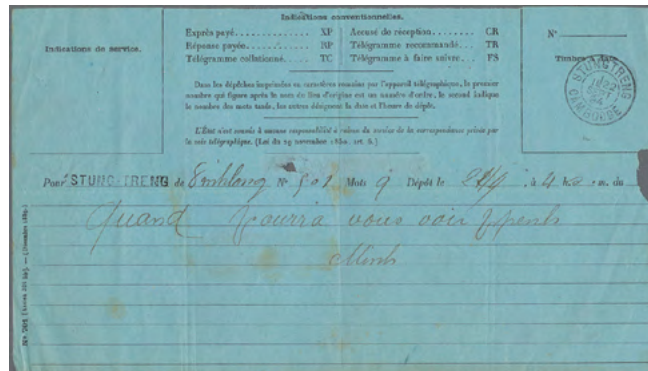 Indications de service.
Indications conventionnelles.
Exprès payé............ XP
Réponse payée............ RP
Télégramme collationné.... TC
Accusé de réception........ CR
Télégramme recommandé... TR
Télégramme à faire suivre... FS
N°
Timbre à date.
STUNG-TRENG
CAMBODGE
Dans les dépêches imprimées en caractères romains par l'appareil télégraphique, le premier
nombre qui figure après le nom du lieu d'origine est un numéro d'ordre, le second indique
le nombre des mots taxés, les autres désignent la date et l'heure de dépôt.
L'État n'est soumis à aucune responsabilité à raison du service de la correspondance privée par
la voie télégraphique. (Loi du 29 novembre 1850, art. 6.)
Pour STUNG-TRENG de N° 501 Mots 9 Dépôt le à 4 h. m. du
Quand pourra vous voir